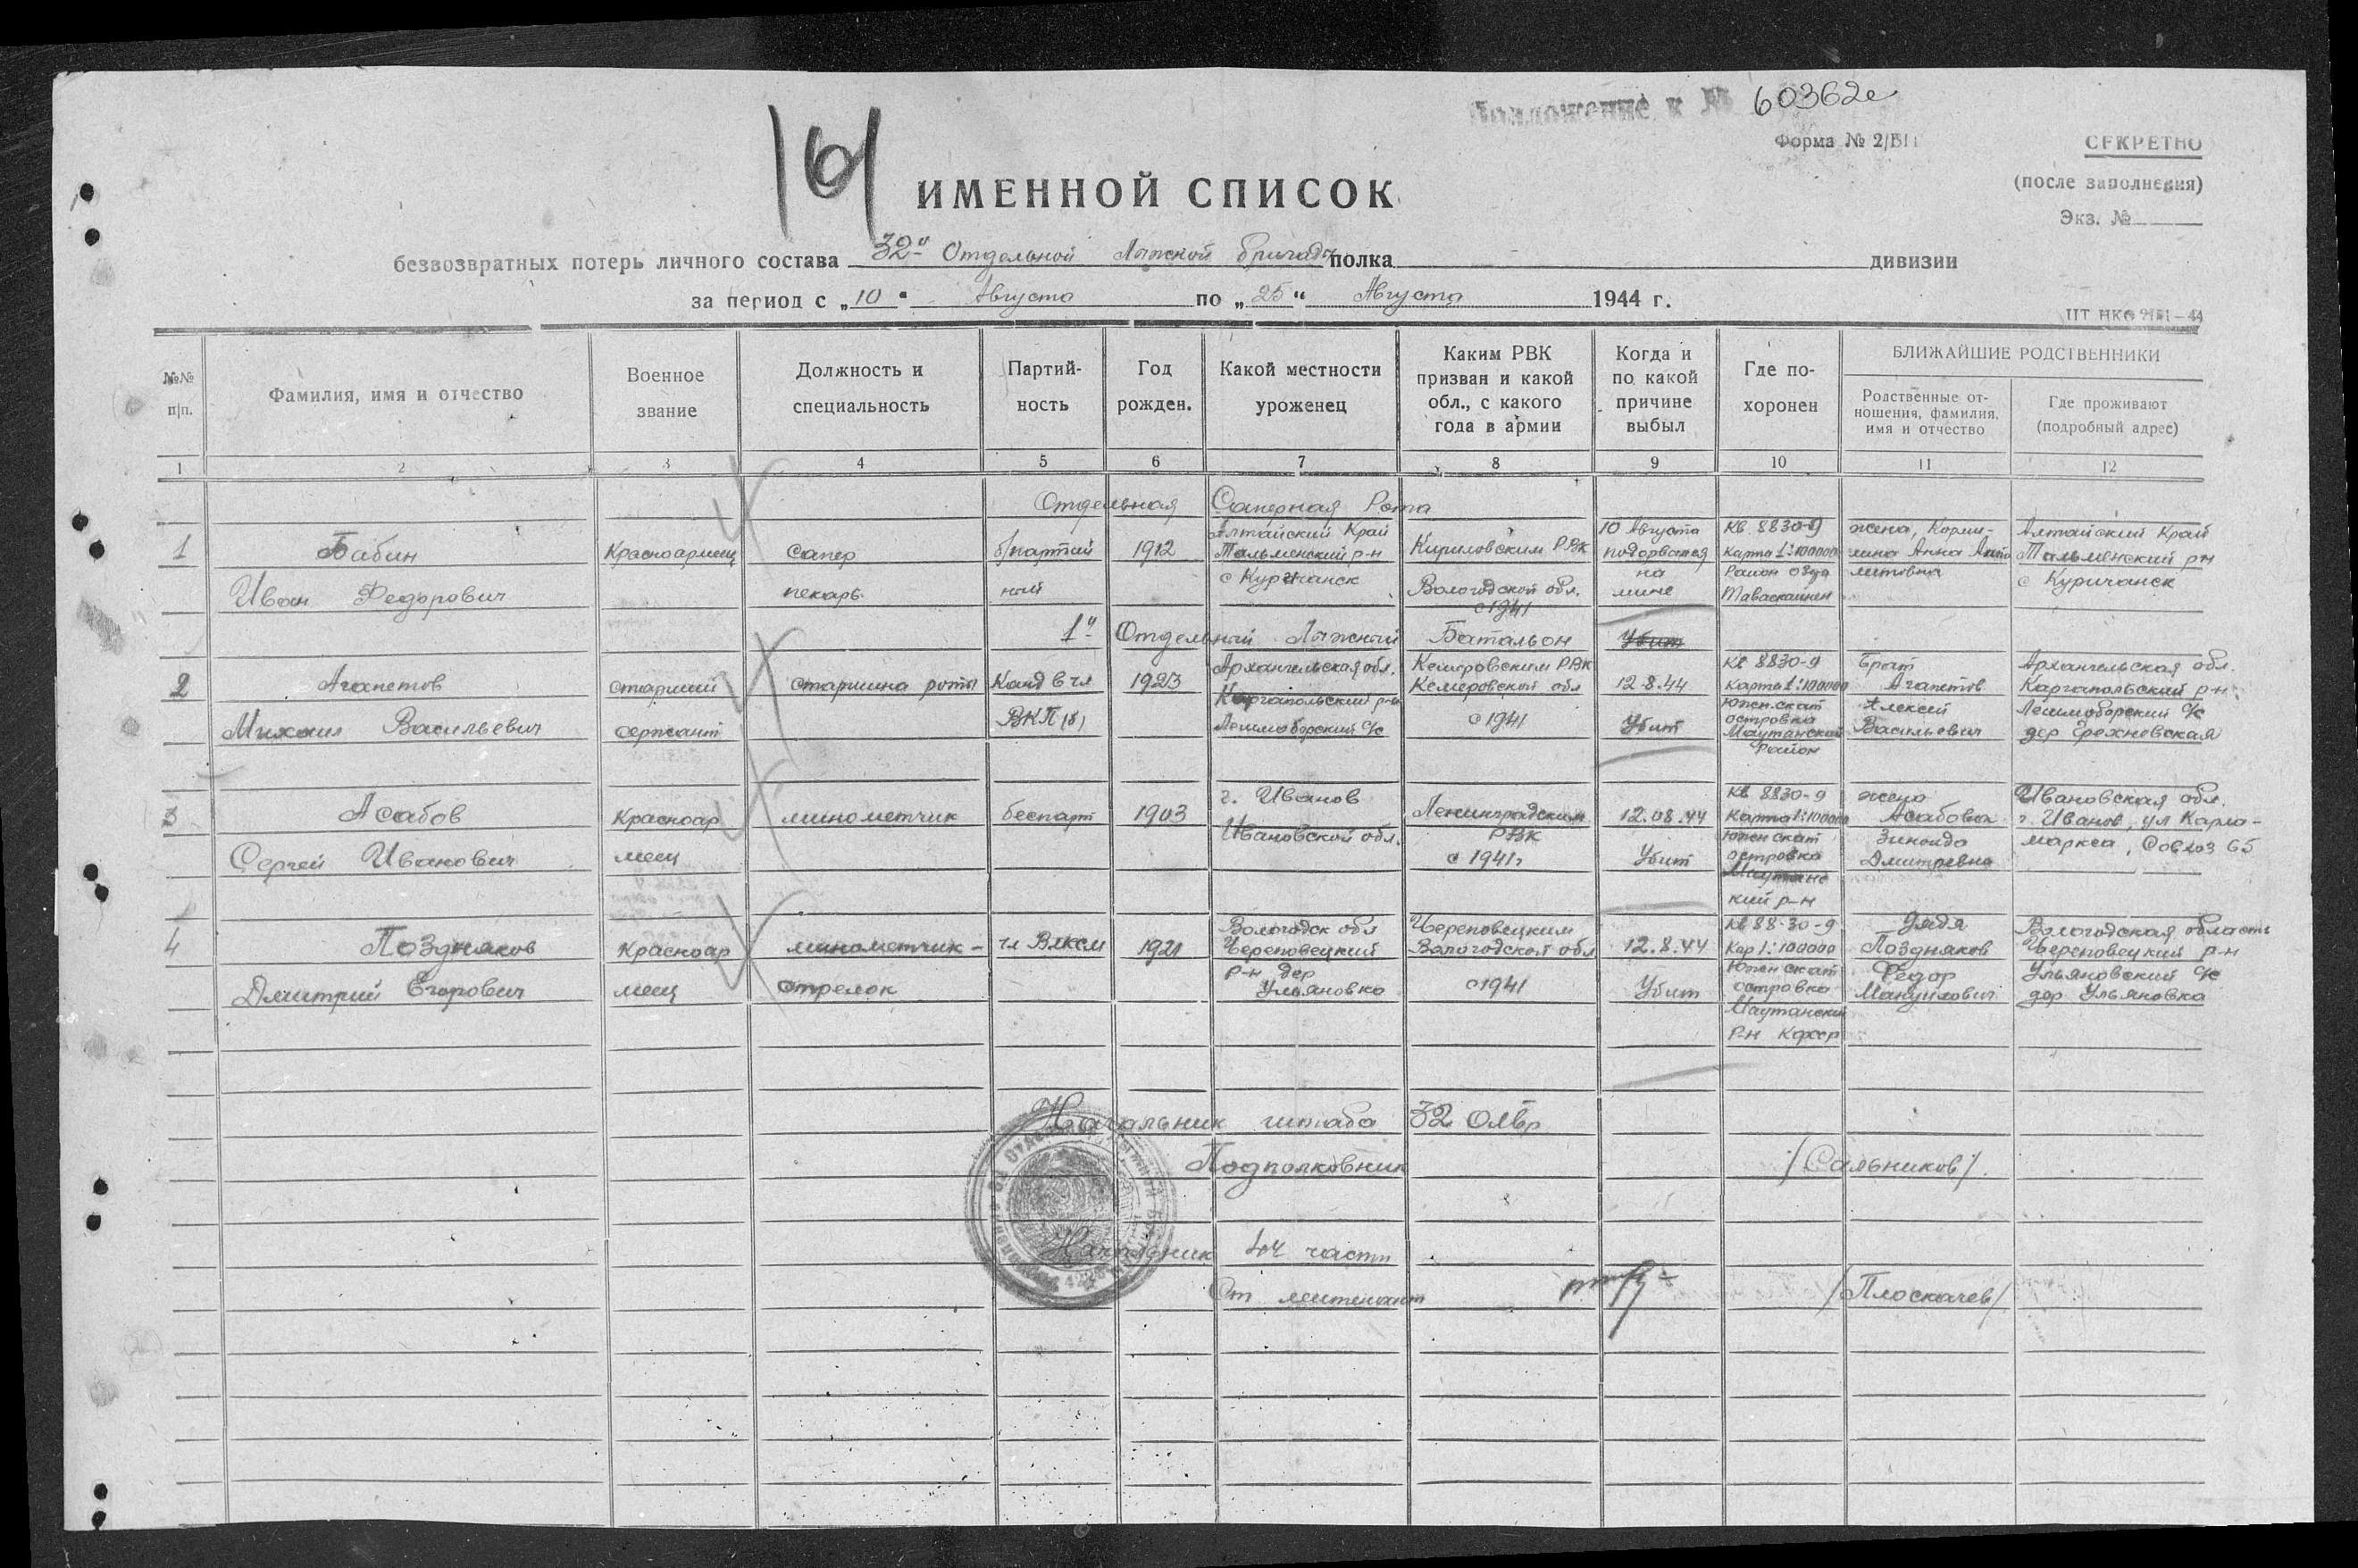 Приложение к № 60362с
Форма № 2/БП
СЕКРЕТНО
(после заполнения)
Экз. №
161
ИМЕННОЙ СПИСОК
безвозвратных потерь личного состава 32й Отдельной Лыжной бригады полка дивизии
за период с „10“ Августа по „25“ Августа 1944 г.
№№ п/п.
Фамилия, имя и отчество
Военное звание
Должность и специальность
Партий-
ность
Год рожден.
Какой местности уроженец
Каким РВК
призван и какой
обл., с какого
года в армии
Когда и
по какой
причине
выбыл
Где по-
хоронен
БЛИЖАЙШИЕ РОДСТВЕННИКИ
Родственные от-
ношения, фамилия,
имя и отчество
Где проживают
(подробный адрес)
1 2 3 4 5 6 7 8 9 10 11 12
Отдельная Саперная Рота
1
Бабин
Иван Федорович
Красноармеец
сапер
пекарь
б/партий
ный
1912
Алтайский Край
Тальменский р-н
с Куричанск
Кириловским РВК
Вологодской обл.
с 1941
10 Августа
подорвался
на
мине
Кв 8830-9
Карта 1:100000
Район оз
жена,
Анна
Алтайский Край
Тальменский рн
с Куричанск
1й Отдельный Лыжный Батальон
Убит
2
Агапетов
Михаил Васильевич
старший
сержант
старшина роты
Канд в чл
ВКП(б)
1923
Архангельская обл.
Каргапольский р-н
Лешмоборский с/с
Кемеровским РВК
Кемеровской обл
с 1941
12.8.44
Убит
Кв 8830-9
Карта 1:100000
Южн.скат
островка
Маутанский
район
Брат
Агапетов
Алексей
Васильевич
Архангельская обл.
Каргапольский р-н
Лешмоборский с/с
дер
3
Асабов
Сергей Иванович
Красноар
меец
минометчик
беспарт
1903
г. Иванов
Ивановской обл.
Ленинградским
РВК
с 1941г
12.08.44
Убит
Кв 8830-9
Карта 1:100000
Южн скат
островка
Маутанс
кий р-н
жена
Асабова
Зинаида
Дмитревна
Ивановская обл.
г. Иванов, ул Карла-
маркса, 65
4
Поздняков
Дмитрий Егорович
Красноар
меец
минометчик-
стрелок
чл Влксм
1921
Вологодск обл
Череповецкий
р-н дер
Ульяновка
Череповецким
Вологодской обл
с 1941
12.8.44
Убит
Кв 88-30-9
Кар 1:100000
Южн скат
островка
Маутанский
р-н Кфсср
дядя
Поздняков
Федор
Мануилович
Вологодская область
Череповецкий р-н
Ульяновский с/с
дер Ульяновка
Начальник штаба 32 олбр
Подполковник /Сальников/
Начальник 4й части
Ст лейтенант /Плоскачев/